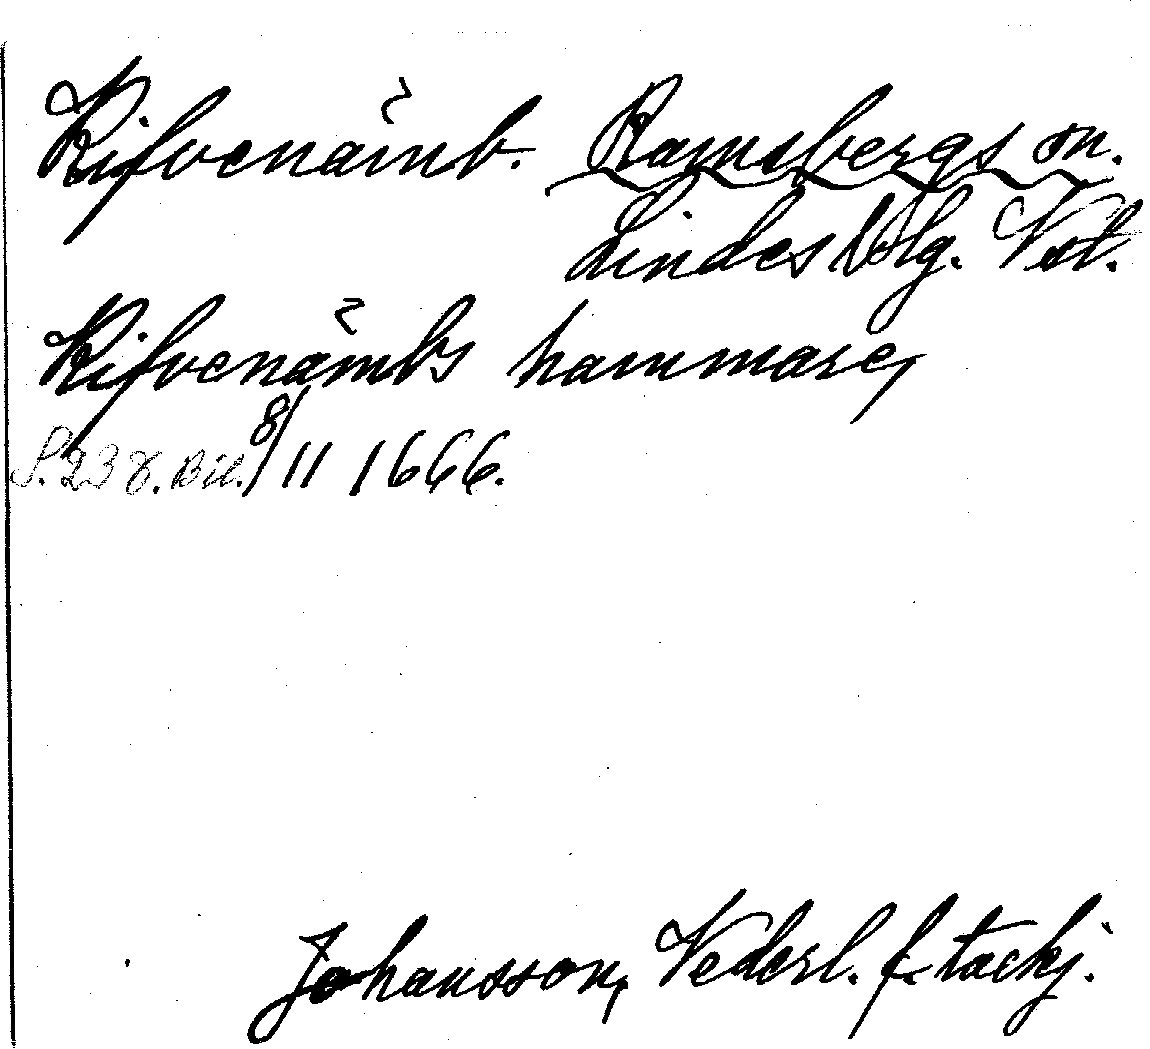 Rifvenämb. Ramsbergs sn.
Lindes blg. Vstl.
Rifvenämbs hammare,
S. 238. Bil. 8/11 1666.
Johansson, Vederl. f. tackj.